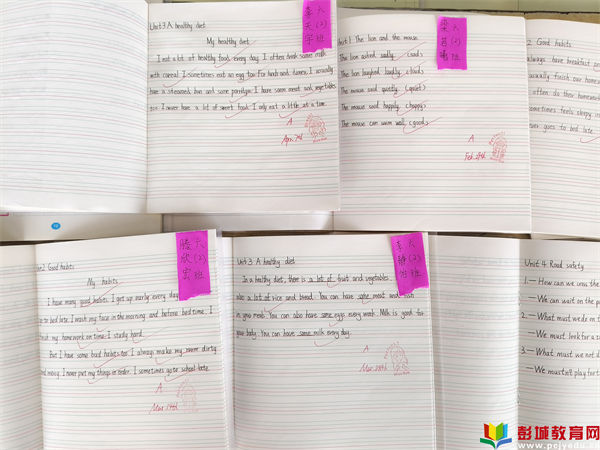 Unit 3 A healthy diet
My healthy diet
I eat a lot of healthy food every day. I often drink some milk
with cereal. I sometimes eat an egg too. For lunch and dinner, I usually
have a steamed bun and some porridge. I have some meat and vegetables
too. I never have a lot of sweet food. I only eat a little at a time.
A
大
(2)
班
Unit 1 The lion and the mouse
The lion asked sadly. (sad)
The lion laughed loudly. (loud)
The mouse said quietly. (quiet)
The mouse said happily. (happy)
The mouse can swim well. (good)
A
Feb. 29th
大
(2)
班
2 Good habits
always have breakfast
usually finish our home
often do their homework
sometimes feels sleepy in
never goes to bed late.
Unit 2 Good habits
My habits
I have many good habits. I get up early every day
go to bed late. I wash my face in the morning and before bedtime. I
finish my homework on time. I study hard.
But I have some bad habits too. I always make my room dirty
and messy. I never put my things in order. I sometimes go to school late.
A
Mar. 14th
滕 六
欣 (2)
宏 班
Unit 3 A healthy diet
In a healthy diet, there is a lot of fruit and vegetables
also a lot of rice and bread. You can have some meat and fish
in your meals. You can also have some eggs every week. Milk is good for
your body. You can have some milk every day.
A
Mar. 28th
李 六
静 (2)
怡 班
Unit 4 Road safety
1 — How can we cross the
— We can wait on the p
2 — What must we do on t
— We must look for a z
3 — What must we not d
— We mustn't play
彭城教育网
www.pcjyedu.